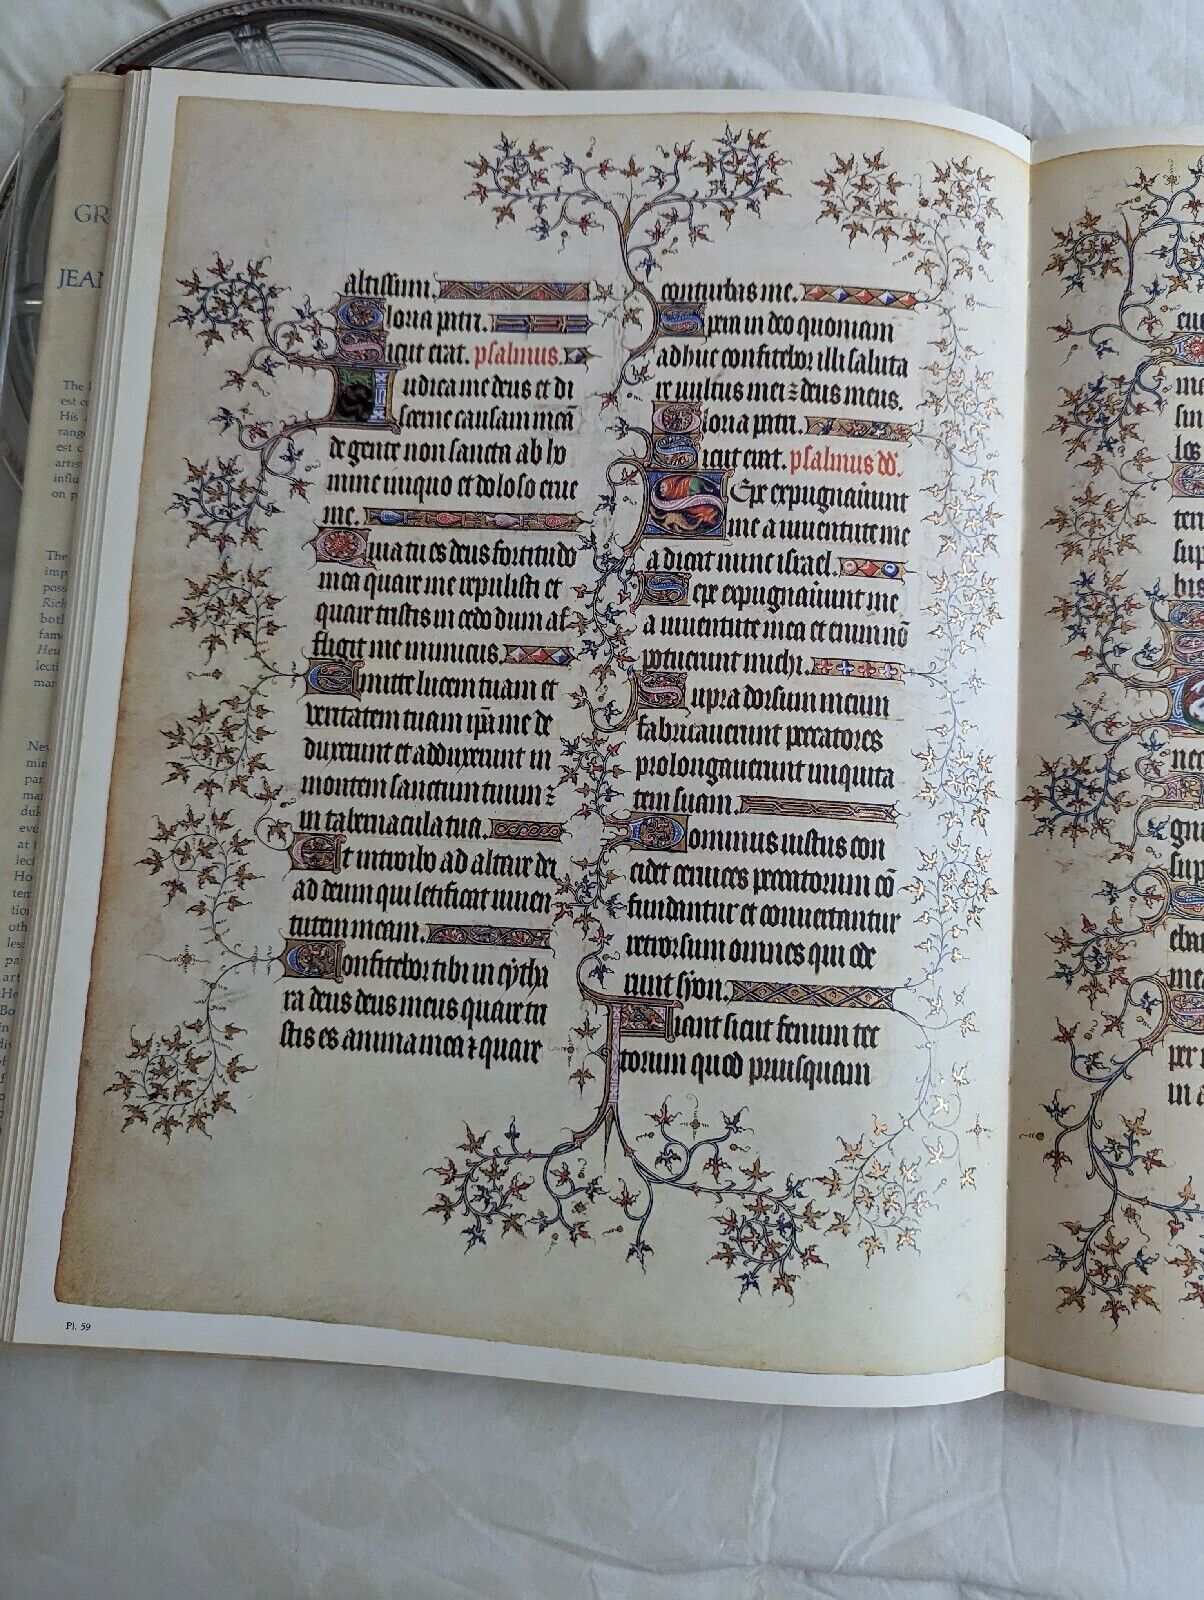 GR
JEAN
altissimum.
Gloria patri.
Sicut erat. psalmus.
Iudica me deus et di
scerne causam meā
de gente non sancta ab ho
mine iniquo et doloso erue
me.
Quia tu es deus fortitudo
mea quare me repulisti et
quare tristis incedo dum af
fligit me inimicus.
Emitte lucem tuam et
veritatem tuam ip̄a me de
duxerunt et adduxerunt in
montem sanctum tuum ⁊
in tabernacula tua.
Et introibo ad altare dei
ad deum qui letificat iuuen
tutem meam.
Confitebor tibi in cytha
ra deus deus meus quare tri
stis es anima mea ⁊ quare
conturbas me.
Spera in deo quoniam
adhuc confitebor illi saluta
re uultus mei ⁊ deus meus.
Gloria patri.
Sicut erat. psalmus dd̄.
Sepe expugnauerunt
me a iuuentute me
a dicat nunc israel.
Sepe expugnauerunt me
a iuuentute mea et enim nō
potuerunt michi.
Supra dorsum meum
fabricauerunt peccatores
prolongauerunt iniquita
tem suam.
Dominus iustus con
cidet ceruices peccatorum cō
fundantur et conuertantur
retrorsum omnes qui ode
runt syon.
Fiant sicut fenum tec
torum quod priusquam
Pl. 59